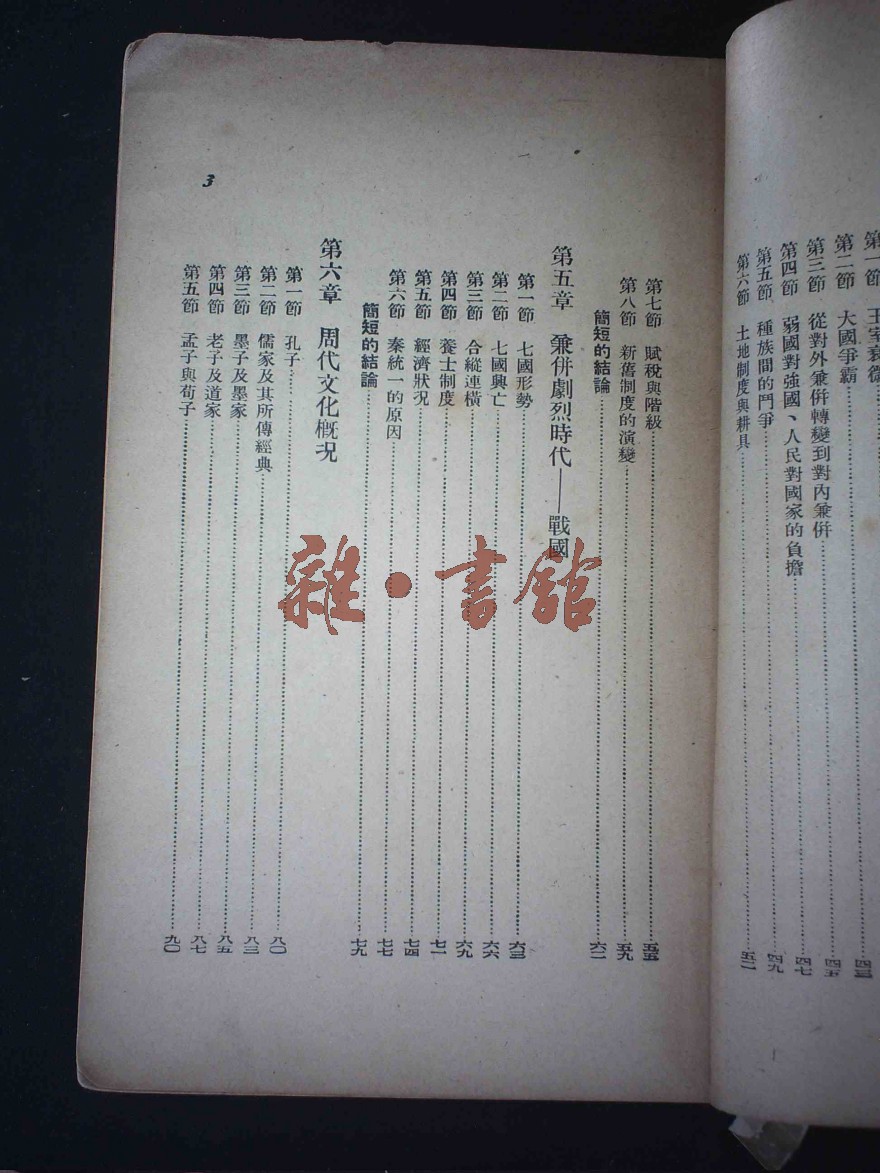 第一節 王室衰微 四三
第二節 大國爭霸 四五
第三節 從對外兼併轉變到對內兼併 四七
第四節 弱國對強國、人民對國家的負擔
第五節 種族間的鬥爭 四九
第六節 土地制度與耕具 五二
第七節 賦稅與階級 五五
第八節 新舊制度的演變 五九
簡短的結論 六二
第五章 兼併劇烈時代——戰國
第一節 七國形勢 六三
第二節 七國興亡 六六
第三節 合縱連橫 六九
第四節 養士制度 七一
第五節 經濟狀况 七四
第六節 秦統一的原因 七七
簡短的結論 七九
第六章 周代文化概况
第一節 孔子 八〇
第二節 儒家及其所傳經典 八三
第三節 墨子及墨家 八五
第四節 老子及道家 八七
第五節 孟子與荀子 九〇
3
雜·書館